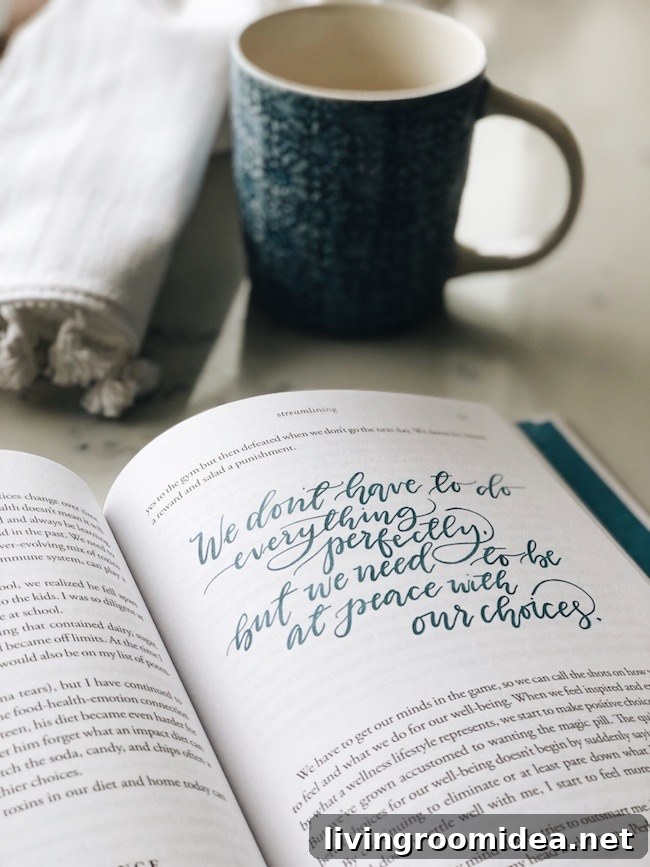 ices change over time
ealth doesn't mean it w
and always be learning
d in the past. We need to
ver-evolving mix of toxins
immune system, can play a
ool, we realized he fell apart
to the kids. I was so diligent a
e at school.
ing that contained dairy, sugar,
d became off limits. At the time I
would also be on my list of poten
na tears), but I have continued to
the food-health-emotion connection
teen, his diet became even harder for
et him forget what an impact diet can
tch the soda, candy, and chips often a
hier choices.
toxins in our diet and home today can
streamlining
yes to the gym but then defeated when we don't go the next day. We
a reward and salad a punishment.
We don't have to do
everything
perfectly,
but we need to be
at peace with
our choices.
We have to get our minds in the game, so we can call the shots on how w
to feel and what we do for our well-being. When we feel inspired and e
by what a wellness lifestyle represents, we start to make positive choice
we've grown accustomed to wanting the magic pill. The qui
choices for our well-being doesn't begin by suddenly sayin
to eliminate or at least pare down what
well with me, I start to feel more
to outsmart me
livingroomidea.net